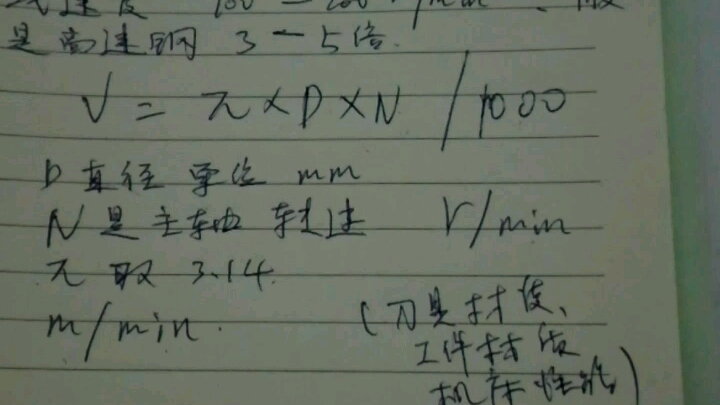 线速度 100-200 m/min、一般
是高速钢 3-5倍.
V = π×D×N/1000
D 直径 单位 mm
N 是主轴转速 r/min
π 取 3.14.
m/min. (刀具材质、
工件材质
机床性能)